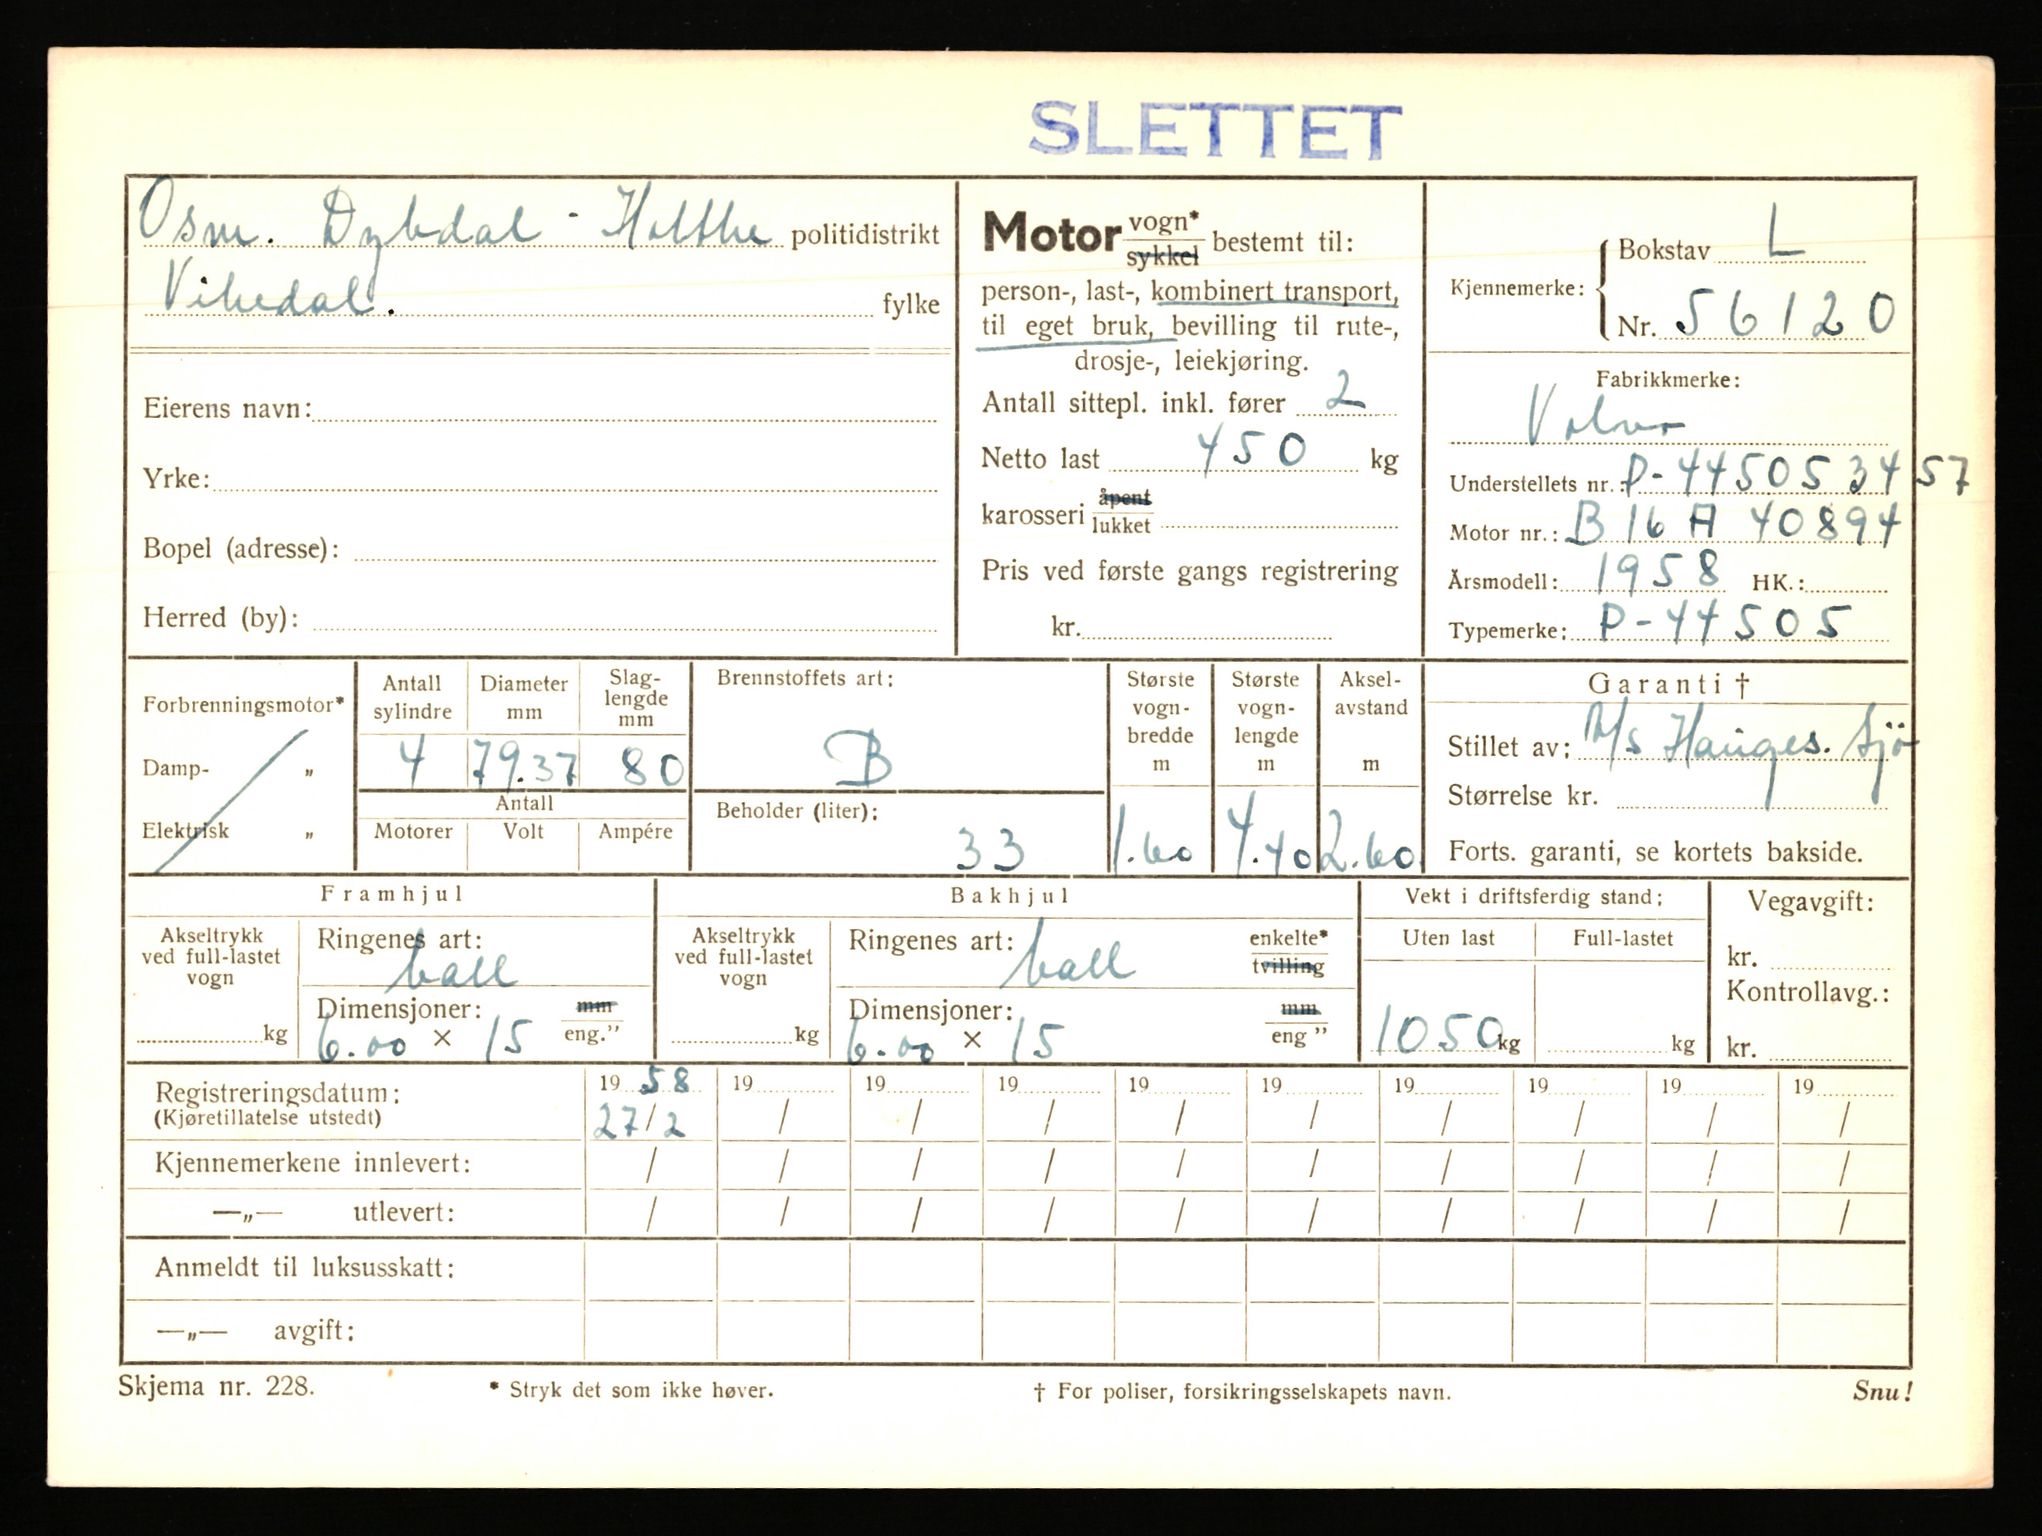 SLETTET
Osm. Dybdal - Holthe politidistrikt
Vikedal. fylke
Eierens navn:
Yrke:
Bopel (adresse):
Herred (by):
Motor vogn* sykkel bestemt til:
person-, last-, kombinert transport,
til eget bruk, bevilling til rute-,
drosje-, leiekjøring.
Antall sittepl. inkl. fører 2
Netto last 450 kg
karosseri åpent lukket
Pris ved første gangs registrering
kr.
Kjennemerke: Bokstav L
Nr. 56120
Fabrikkmerke:
Volvo
Understellets nr.: P-445053457
Motor nr.: B 16 A 40894
Årsmodell: 1958 HK.:
Typemerke: P-44505
Forbrenningsmotor*
Damp- „
Elektrisk „
Antall sylindre Diameter mm Slag-lengde mm
4 79.37 80
Antall
Motorer Volt Ampére
Brennstoffets art:
B
Beholder (liter):
33
Største vogn-bredde m Største vogn-lengde m Aksel-avstand m
1.60 4.40 2.60
Garanti †
Stillet av: A/s Hauges. Sjö
Størrelse kr.
Forts. garanti, se kortets bakside.
Framhjul
Akseltrykk ved full-lastet vogn
kg
Ringenes art:
ball
Dimensjoner: mm
6.00 × 15 eng.”
Bakhjul
Akseltrykk ved full-lastet vogn
kg
Ringenes art: enkelte*
ball tvilling
Dimensjoner: mm
6.00 × 15 eng ”
Vekt i driftsferdig stand:
Uten last Full-lastet
1050 kg kg
Vegavgift:
kr.
Kontrollavg.:
kr.
Registreringsdatum: 19 58 19 19 19 19 19 19 19 19 19
(Kjøretillatelse utstedt) 27/2 / / / / / / / / /
Kjennemerkene innlevert: / / / / / / / / / /
—„— utlevert: / / / / / / / / / /
Anmeldt til luksusskatt:
—„— avgift:
Skjema nr. 228. * Stryk det som ikke høver. † For poliser, forsikringsselskapets navn. Snu!